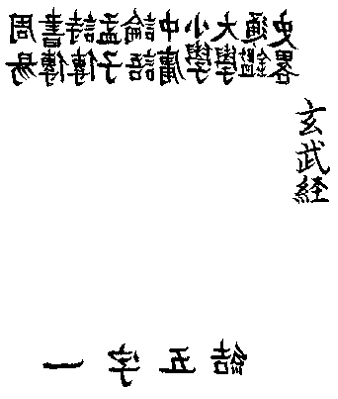 玄武経
史畧
通鑑
大學
小學
中庸
論語
孟子
詩傳
書傳
周易
結五字一